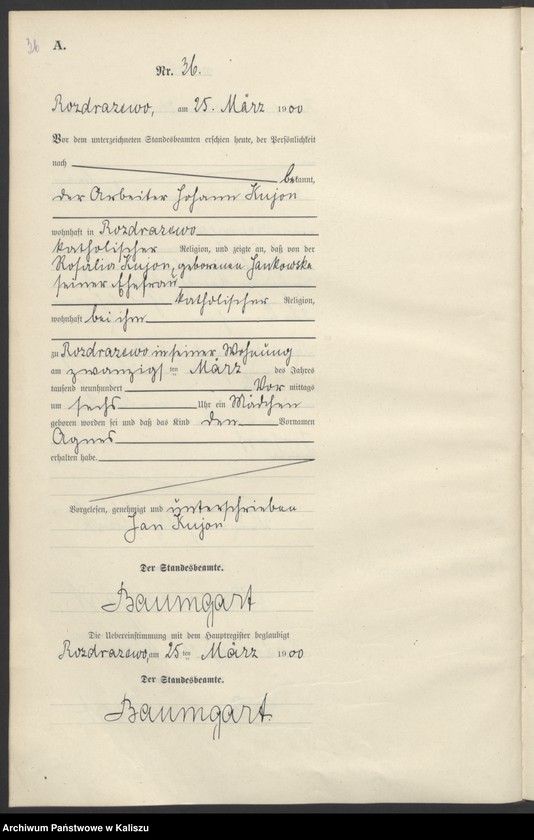 36
A.
Nr. 36.
Rozdrazewo, am 25. März 1900
Vor dem unterzeichneten Standesbeamten erschien heute, der Persönlichkeit
nach
bekannt,
der Arbeiter Johann Kujon
wohnhaft in Rozdrazewo
katholischer Religion, und zeigte an, daß von der
Rosalia Kujon, geborenen Jankowska
seiner Ehefrau
katholischer Religion,
wohnhaft bei ihm
zu Rozdrazewo in seiner Wohnung
am zwanzigsten März des Jahres
tausend neunhundert Vormittags
um sechs Uhr ein Mädchen
geboren worden sei und daß das Kind den Vornamen
Agnes
erhalten habe.
Vorgelesen, genehmigt und unterschrieben
Jan Kujon
Der Standesbeamte.
Baumgart
Die Uebereinstimmung mit dem Hauptregister beglaubigt
Rozdrazewo, am 25ten März 1900
Der Standesbeamte.
Baumgart.
Archiwum Państwowe w Kaliszu